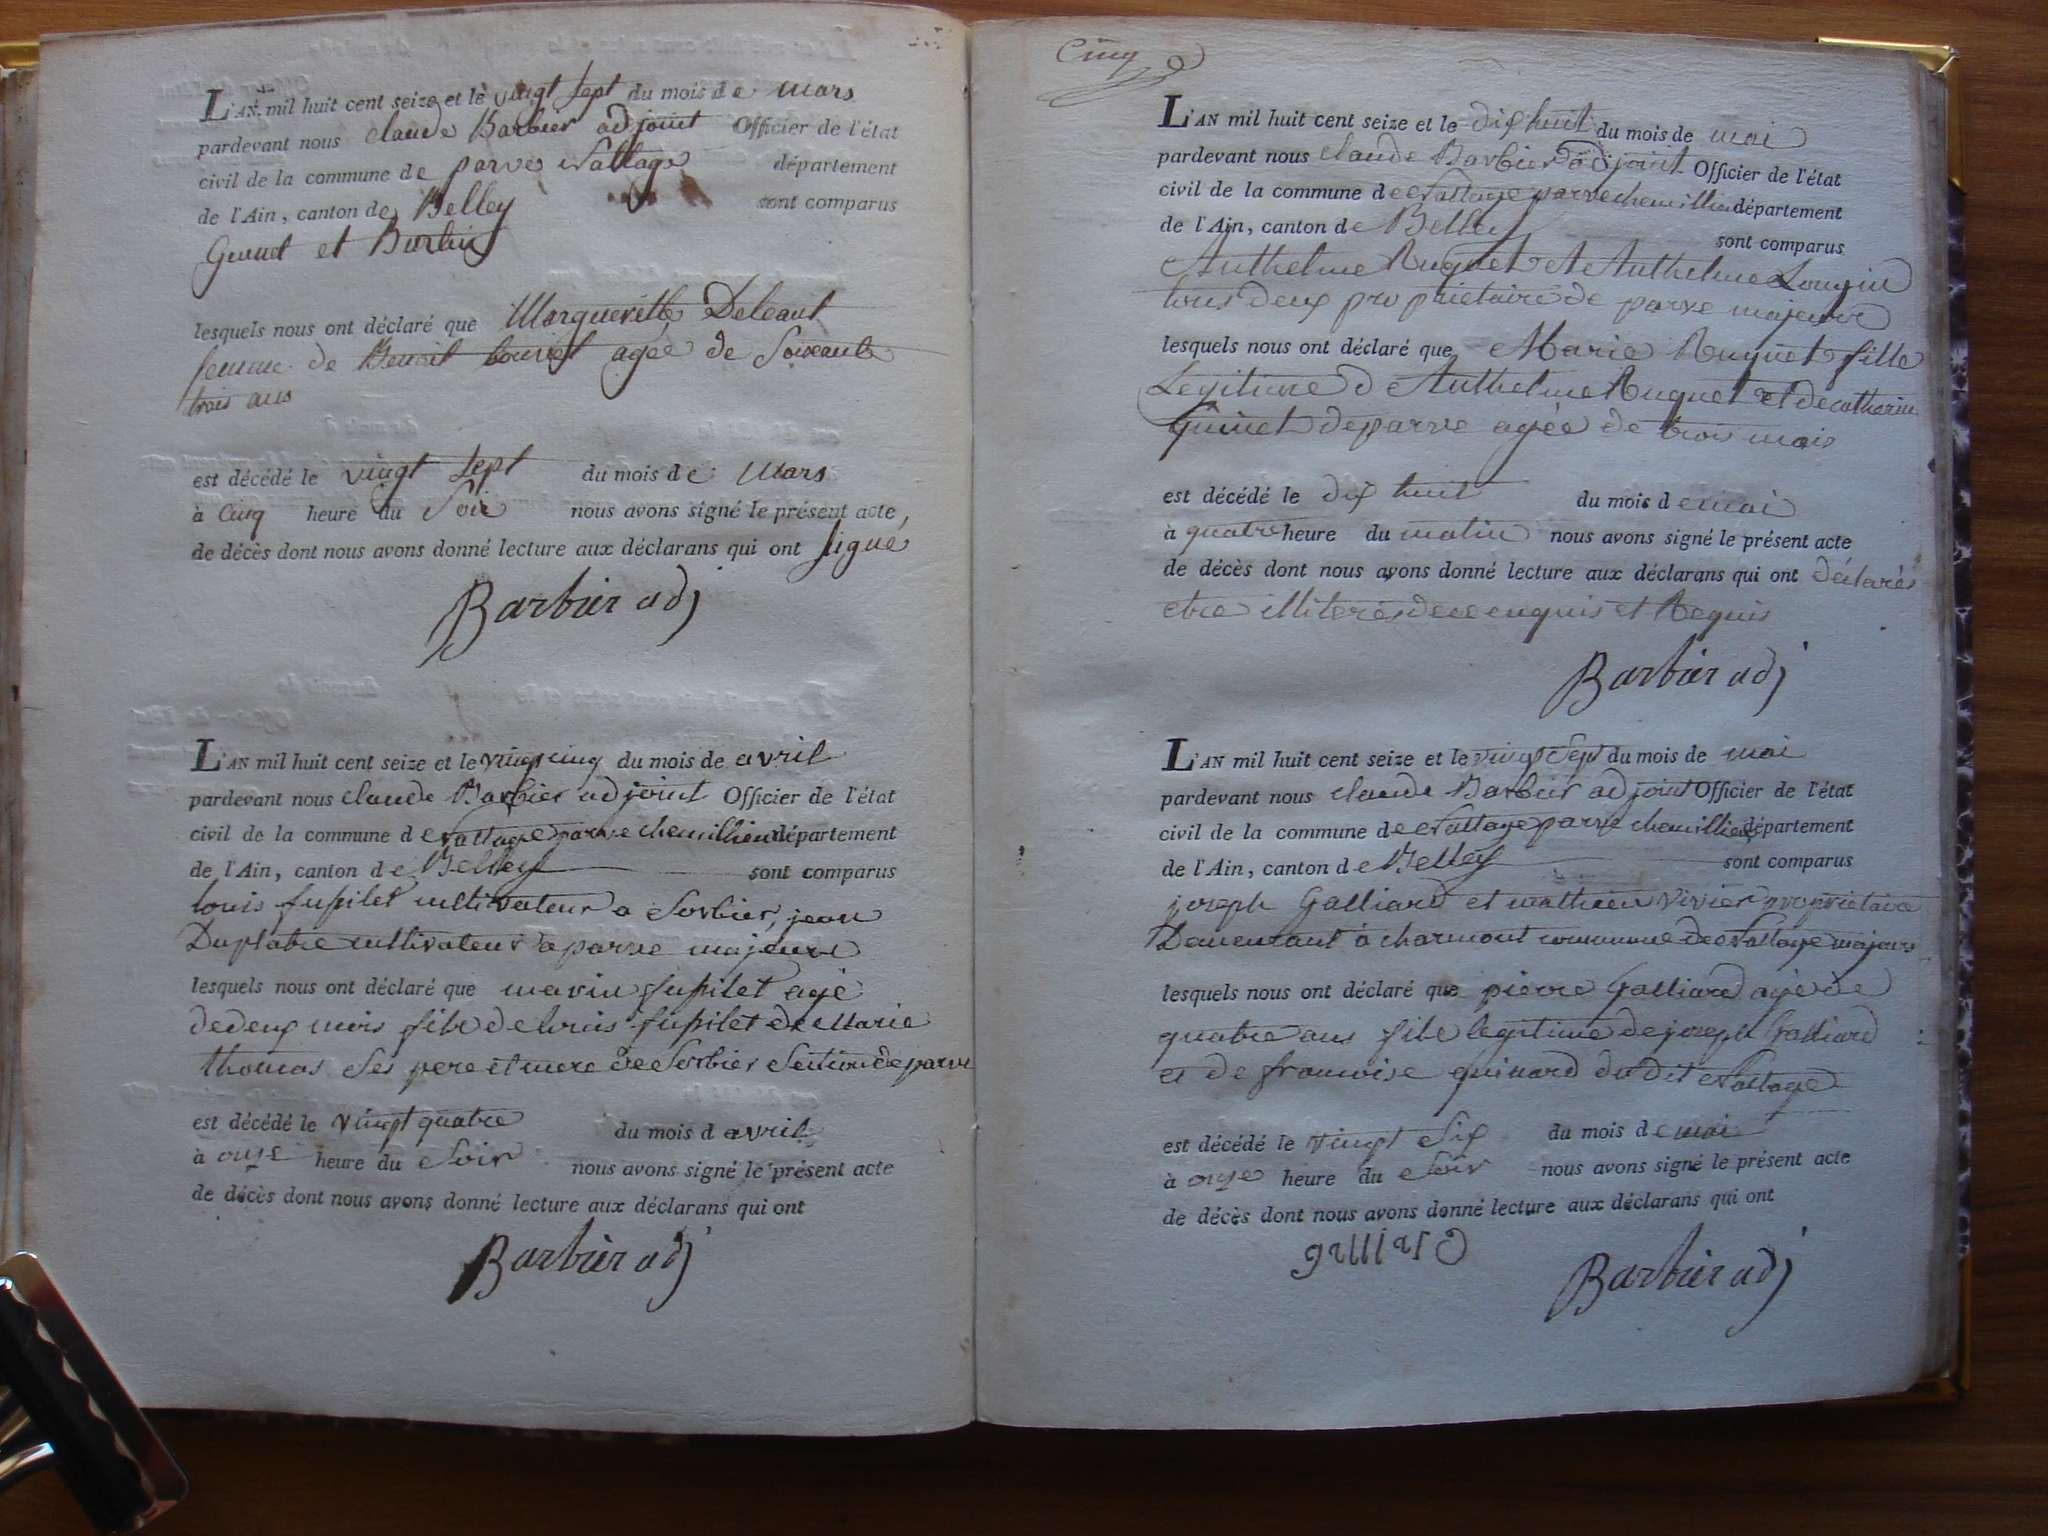 L'AN mil huit cent seize et le vingt sept du mois de mars
pardevant nous claude Barbier adjoint Officier de l'état
civil de la commune de parve nattage département
de l'Ain, canton de Belley sont comparus
et Barbier
lesquels nous ont déclaré que Margueritte
femme de Benoit agée de Soixante
trois ans
est décédé le vingt sept du mois de mars
à Cinq heure du Soir nous avons signé le présent acte
de décès dont nous avons donné lecture aux déclarans qui ont signé
Barbier adj
L'AN mil huit cent seize et le vingt cinq du mois de avril
pardevant nous claude Barbier adjoint Officier de l'état
civil de la commune de nattage parve chemillieu département
de l'Ain, canton de Belley sont comparus
louis fupilet cultivateur a Sorbier, jean
Duplatre cultivateur a parve majeure
lesquels nous ont déclaré que marin fupilet agé
de deux mois fils de louis fupilet de Marie
thomas Ses pere et mere de Sorbier Section de parve
est décédé le vingt quatre du mois d avril
à onze heure du Soir nous avons signé le présent acte
de décès dont nous avons donné lecture aux déclarans qui ont
Barbier adj
Cinq
L'AN mil huit cent seize et le dix huit du mois de mai
pardevant nous claude Barbier adjoint Officier de l'état
civil de la commune de nattage parve chemillieu département
de l'Ain, canton de Belley sont comparus
Anthelme Ruguet et Anthelme
tous deux proprietaire de parve majeure
lesquels nous ont déclaré que Marie Ruguet fille
Legitime d Anthelme Ruguet et de catherine
Guinet de parve agée de trois mois
est décédé le dix huit du mois de mai
à quatre heure du matin nous avons signé le présent acte
de décès dont nous avons donné lecture aux déclarans qui ont déclarés
etre illiterés de ce enquis et Requis
Barbier adj
L'AN mil huit cent seize et le vingt Sept du mois de mai
pardevant nous claude Barbier adjoint Officier de l'état
civil de la commune de nattage parve chemillieu département
de l'Ain, canton de Belley sont comparus
joseph Galliard et mathieu vivier proprietaire
Demeurant à charmont commune de nattage majeurs
lesquels nous ont déclaré que pierre Galliard agé de
quatre ans fils legitime de joseph Galliard
et de francoise guinard du dit nattage
est décédé le vingt Six du mois de mai
à onze heure du Soir nous avons signé le présent acte
de décès dont nous avons donné lecture aux déclarans qui ont
galliard
Barbier adj